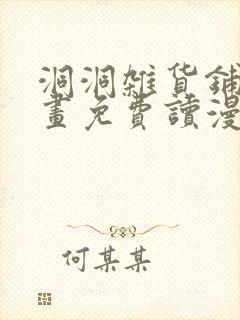 洞洞雜貨鋪
畫免費讀漫
何某某